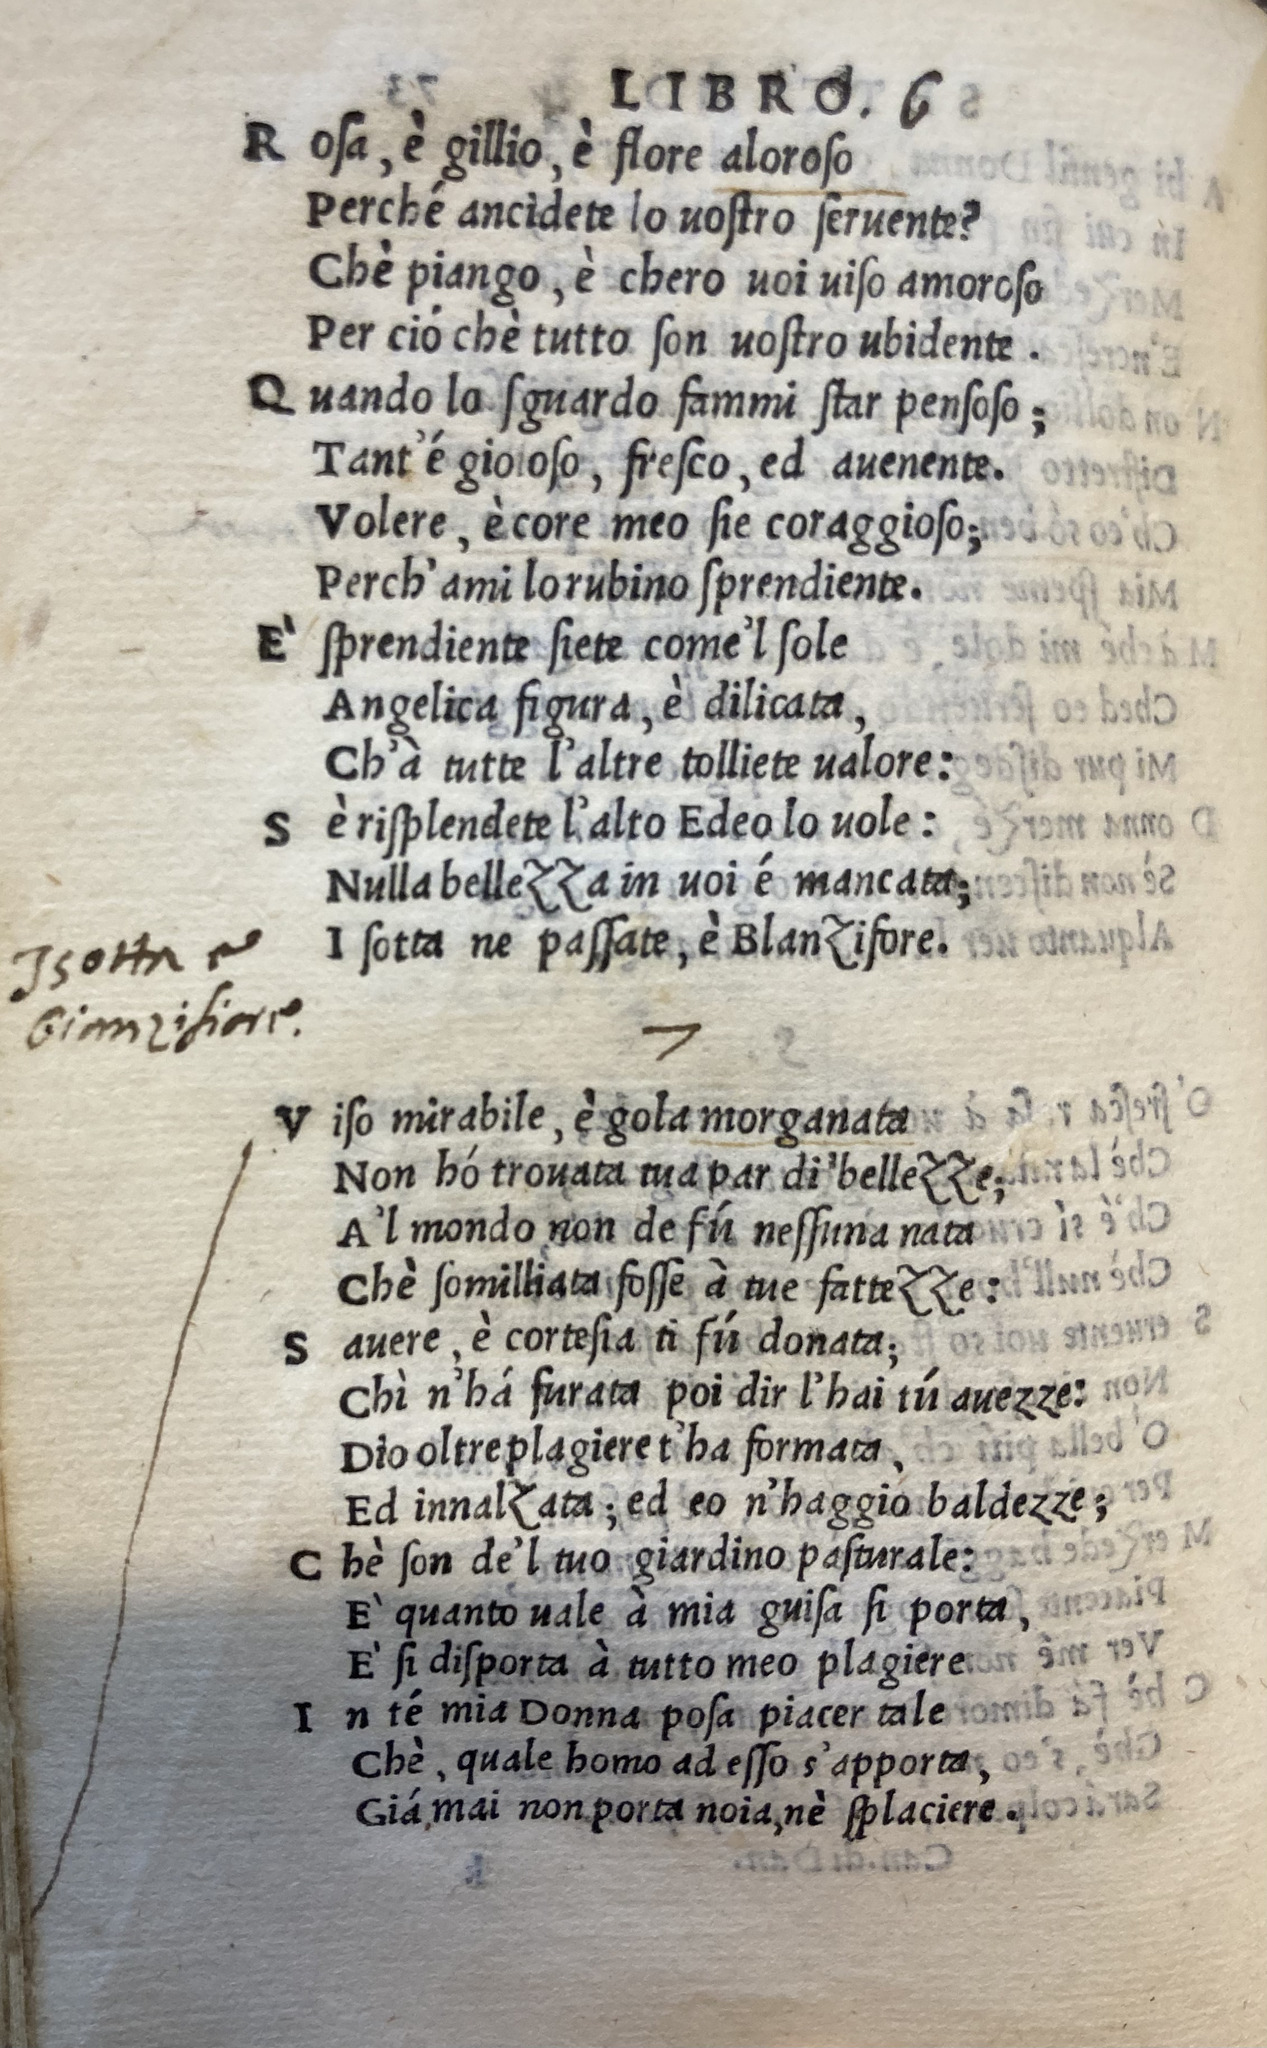 LIBRO. 6
Rosa, è gillio, è flore aloroso
Perché ancidete lo uoſtro ſeruente?
Chè piango, è chero uoi uiſo amoroſo
Per ció chè tutto ſon uoſtro ubidente.
Quando lo ſguardo fammi ſtar penſoſo;
Tant'é gioioſo, freſco, ed auenente.
Volere, è core meo ſie coraggioſo;
Perch'ami lo rubino ſprendiente.
E' ſprendiente ſiete come'l ſole
Angelica figura, è dilicata,
Ch'à tutte l'altre tolliete ualore:
Sè riſplendete l'alto Edeo lo uole:
Nulla bellezza in uoi é mancata;
Iſotta ne paſſate, è Blanzifore.
Isotta e
Bianzifiore.
7
Viſo mirabile, è gola morganata
Non hó trouata tua par di'bellezze;
A'l mondo non de fú neſſuna nata
Chè ſomilliata foſſe à tue fattezze:
Sauere, è corteſia ti fú donata;
Chì n'há furata poi dir l'hai tú auezze:
Dio oltre plagiere t'ha formata,
Ed innalzata; ed eo n'haggio baldezze;
Chè ſon de'l tuo giardino paſturale:
E' quanto uale à mia guiſa ſi porta,
E' ſi diſporta à tutto meo plagiere
In té mia Donna poſa piacer tale
Chè, quale homo ad eſſo s'apporta,
Giá mai non porta noia, nè ſplaciere.